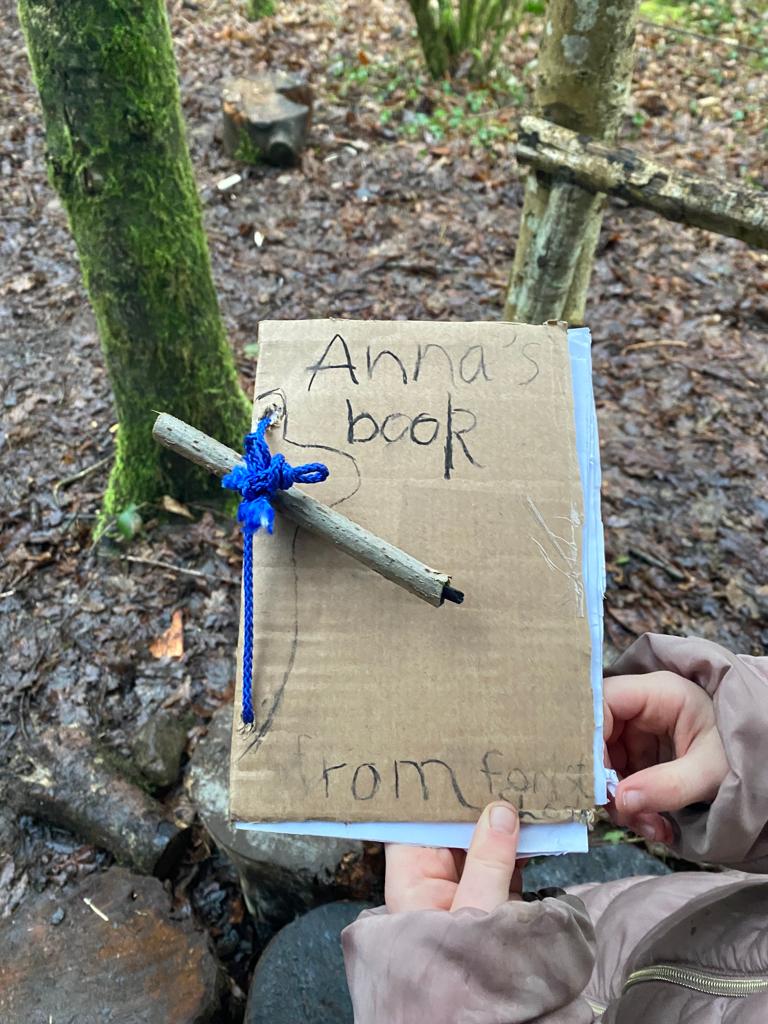 Anna's
book
from forest